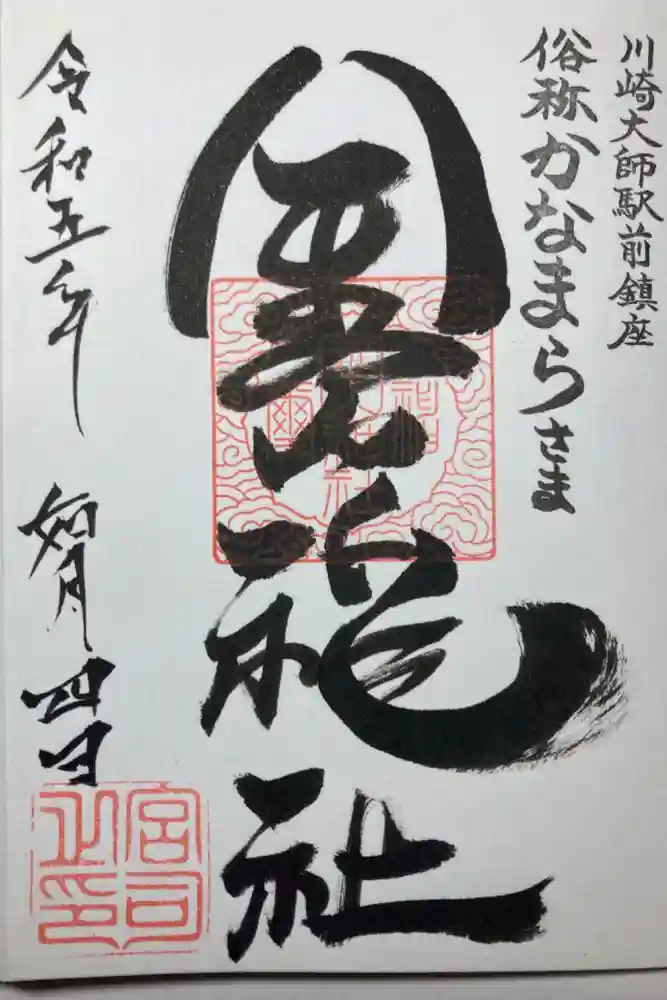 川崎大師駅前鎮座
俗称かなまらさま
金山神社
令和五年 如月 四日
宮司之印